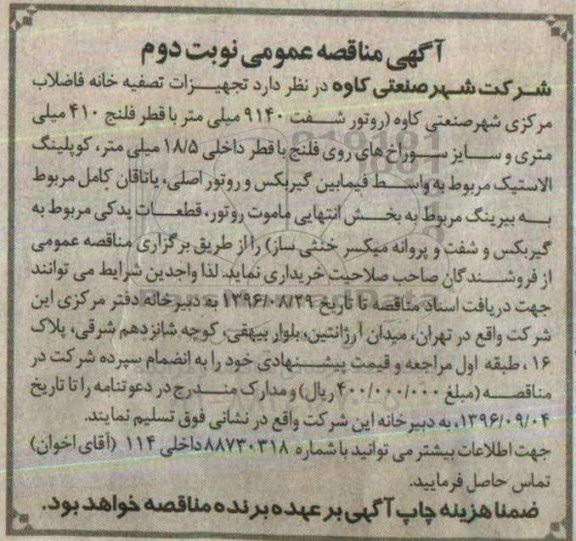 آگهی مناقصه عمومی نوبت دوم
شرکت شهر صنعتی کاوه در نظر دارد تجهیزات تصفیه خانه فاضلاب
مرکزی شهر صنعتی کاوه (روتور شفت ۹۱۴۰ میلی متر با قطر فلنج ۴۱۰ میلی
متری و سایز سوراخ های روی فلنج با قطر داخلی ۱۸/۵ میلی متر، کوپلینگ
الاستیک مربوط به واسط فیمابین گیربکس و روتور اصلی، یاتاقان کامل مربوط
به بیرینگ مربوط به بخش انتهایی ماموت روتور، قطعات یدکی مربوط به
گیربکس و شفت و پروانه میکسر خنثی ساز) را از طریق برگزاری مناقصه عمومی
از فروشندگان صاحب صلاحیت خریداری نماید. لذا واجدین شرایط می توانند
جهت دریافت اسناد مناقصه تا تاریخ ۱۳۹۶/۰۸/۲۹ به دبیرخانه دفتر مرکزی این
شرکت واقع در تهران، میدان آرژانتین، بلوار بیهقی، کوچه شانزدهم شرقی، پلاک
۱۶، طبقه اول مراجعه و قیمت پیشنهادی خود را به انضمام سپرده شرکت در
مناقصه (مبلغ ۴۰۰/۰۰۰/۰۰۰ ریال) و مدارک مندرج در دعوتنامه را تا تاریخ
۱۳۹۶/۰۹/۰۴، به دبیرخانه این شرکت واقع در نشانی فوق تسلیم نمایند.
جهت اطلاعات بیشتر می توانید با شماره ۸۸۷۳۰۳۱۸ داخلی ۱۱۴ (آقای اخوان)
تماس حاصل فرمایید.
ضمنا هزینه چاپ آگهی بر عهده برنده مناقصه خواهد بود.